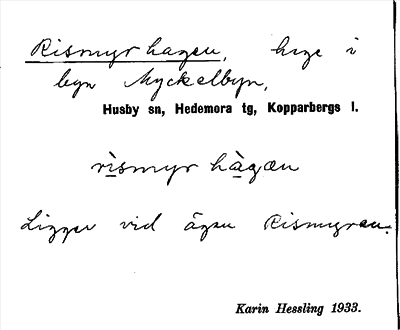 Rismyrhagen, hage i
byn Myckelbyn,
Husby sn, Hedemora tg, Kopparbergs l.
rìsmyr hàgæn
Ligger vid ägan Rismyran.
Karin Hessling 1933.